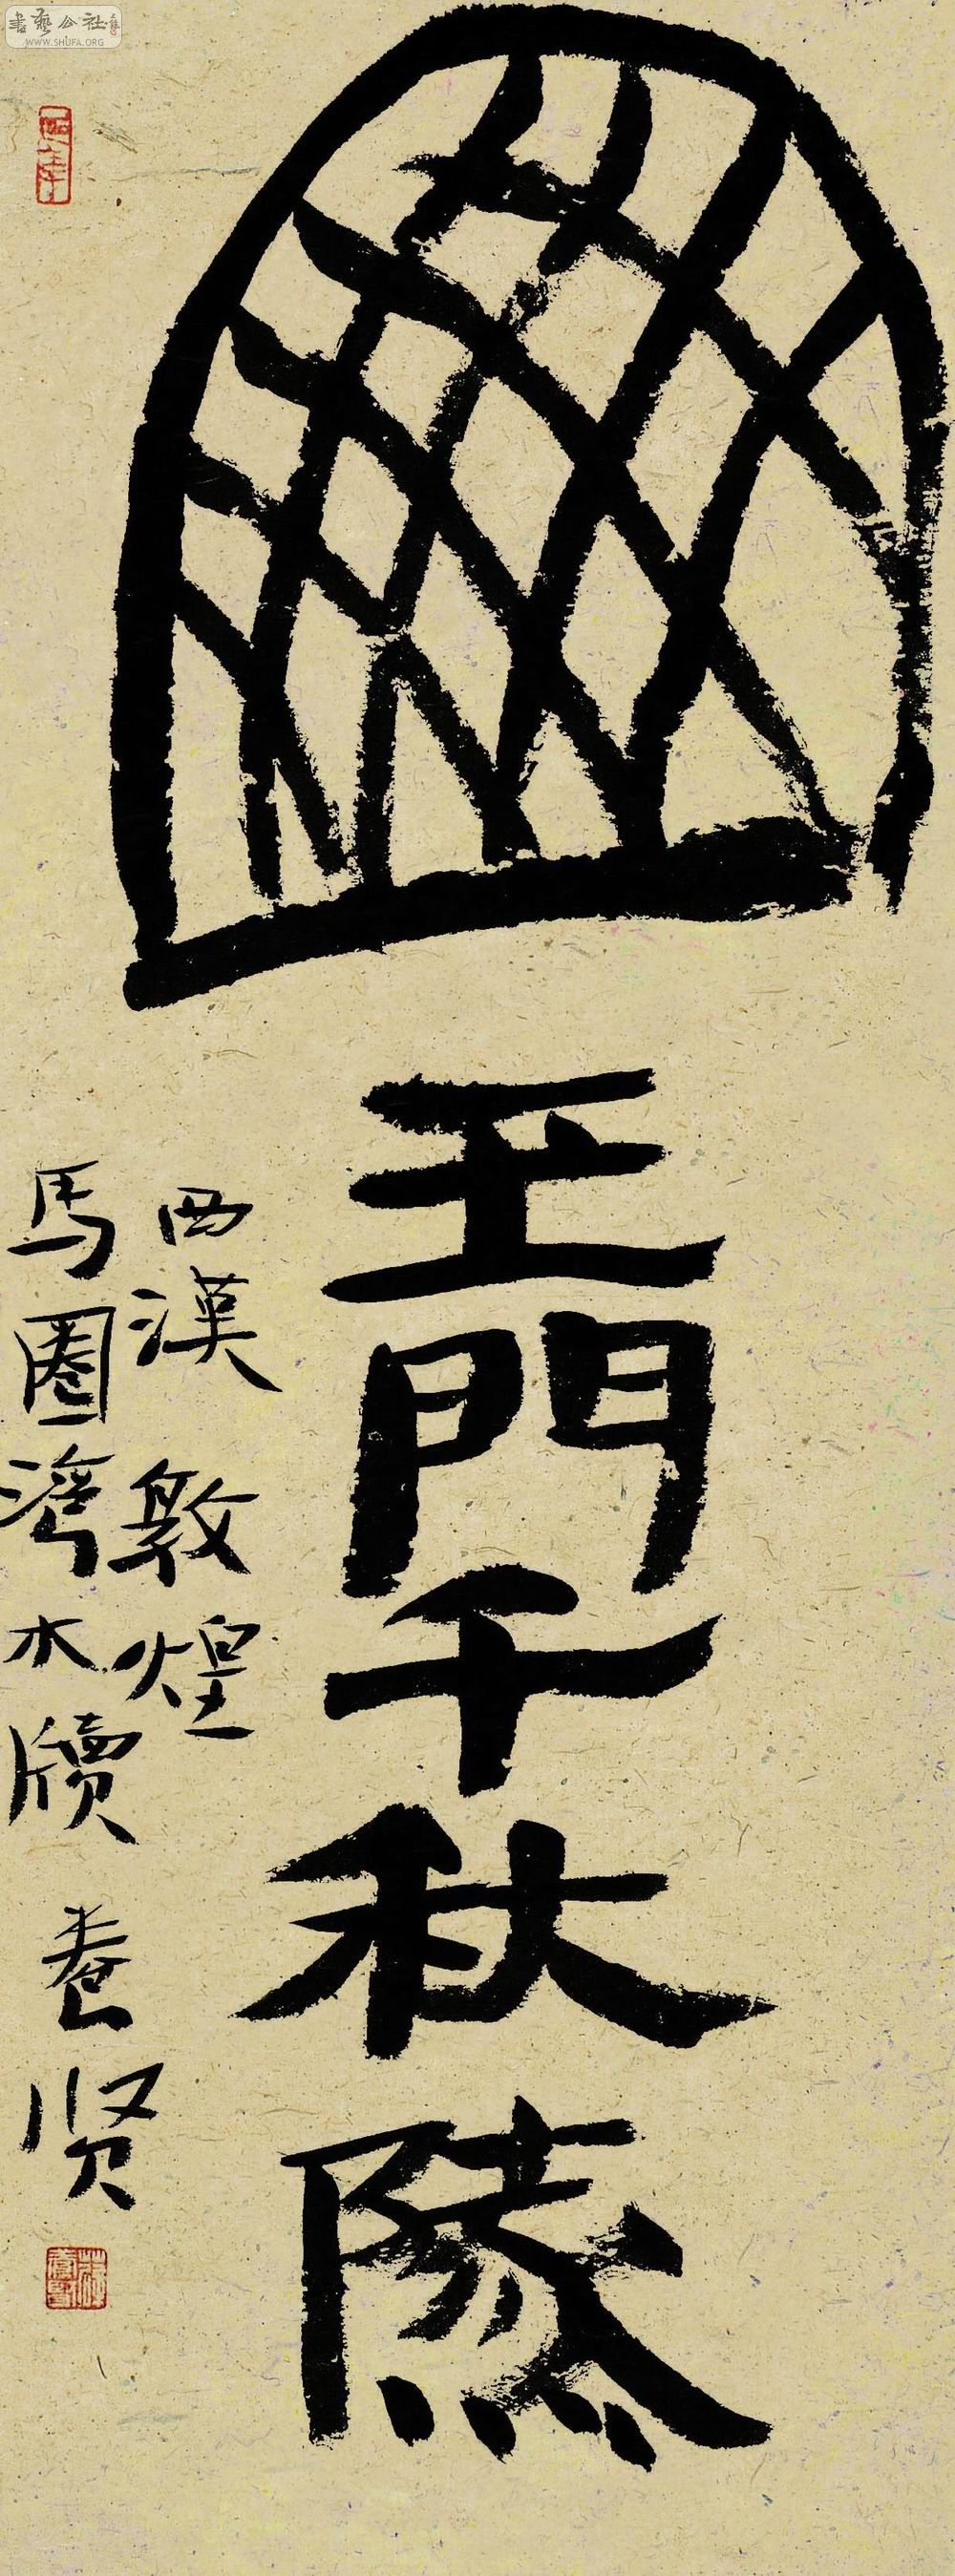 書藝公社
WWW.SHUFA.ORG
王門千秋隧
西漢敦煌
马圈灣木牘 养贤